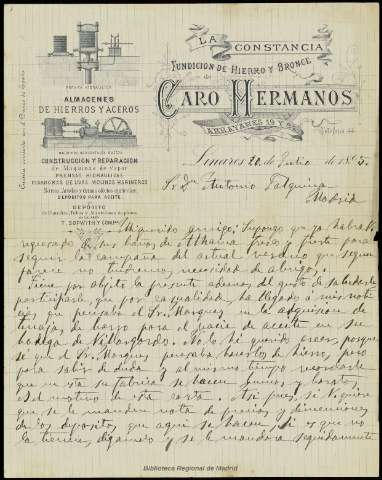 LA CONSTANCIA
FUNDICION DE HIERRO Y BRONCE
de
CARO HERMANOS
ARRAYANES 19
Cuenta corriente en el Banco de España
PRENSA HIDRAULICA
ALMACENES
DE HIERROS Y ACEROS
CONSTRUCCION Y REPARACION
de Maquinas de Vapor
PRENSAS HIDRAULICAS
MOLINOS HARINEROS
DEPOSITOS PARA ACEITE
DEPOSITO
T. SOPWITH Y COMPY
Linares 20 de Julio de
Sr Dn Antonio
Madrid
Mi querido amigo: Supongo que ya habrá
regresado de los baños de Alhama fresco y fuerte para
seguir la campaña del actual verano que segun
parece no tendremos necesidad de abrigo.
Tiene por objeto la presente ademas del gusto de saludarle
participarle que por casualidad, ha llegado á mis noti-
cias, que pensaba el Sr. Marques en la adquisicion de
tinajas de barro para el envase de aceite en su
bodega de Villargordo. No lo he querido creer, porque
sé que el Sr. Marques pensaba hacerlos de hierro, pero
para salir de duda y al mismo tiempo recordarle
que en esta su fabrica se hacen buenos y baratos,
es el motivo de esta carta. Asi pues, si quiere
que se le manden nota de precios y dimensiones
de los depositos que aqui se hacen, si es que no
la tienen, digamelo y se le mandara seguidamente
Biblioteca Regional de Madrid